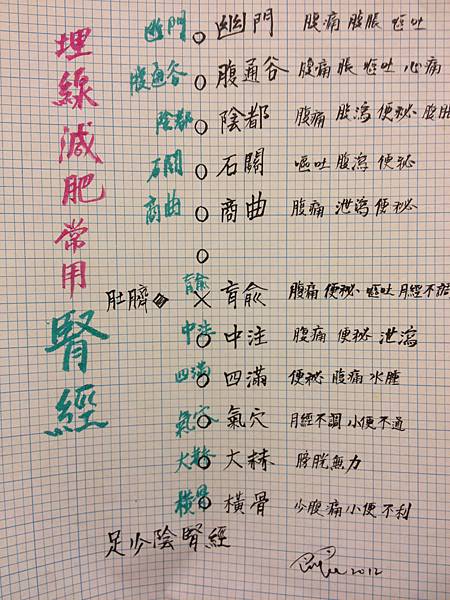 埋線減肥常用
腎經
幽門 幽門 腹痛 腹脹 嘔吐
腹通谷 腹通谷 腹痛 脹 嘔吐 心痛
陰都 陰都 腹痛 腹瀉 便秘
石關 石關 嘔吐 腹瀉 便秘
商曲 商曲 腹痛 泄瀉 便秘
肚臍 肓俞 肓俞 腹痛 便秘 嘔吐 月經不
中注 中注 腹痛 便秘 泄瀉
四滿 四滿 便秘 腹痛 水腫
氣穴 氣穴 月經不調 小便不通
大赫 大赫 膀胱無力
橫骨 橫骨 少腹痛 小便不利
足少陰腎經
2012